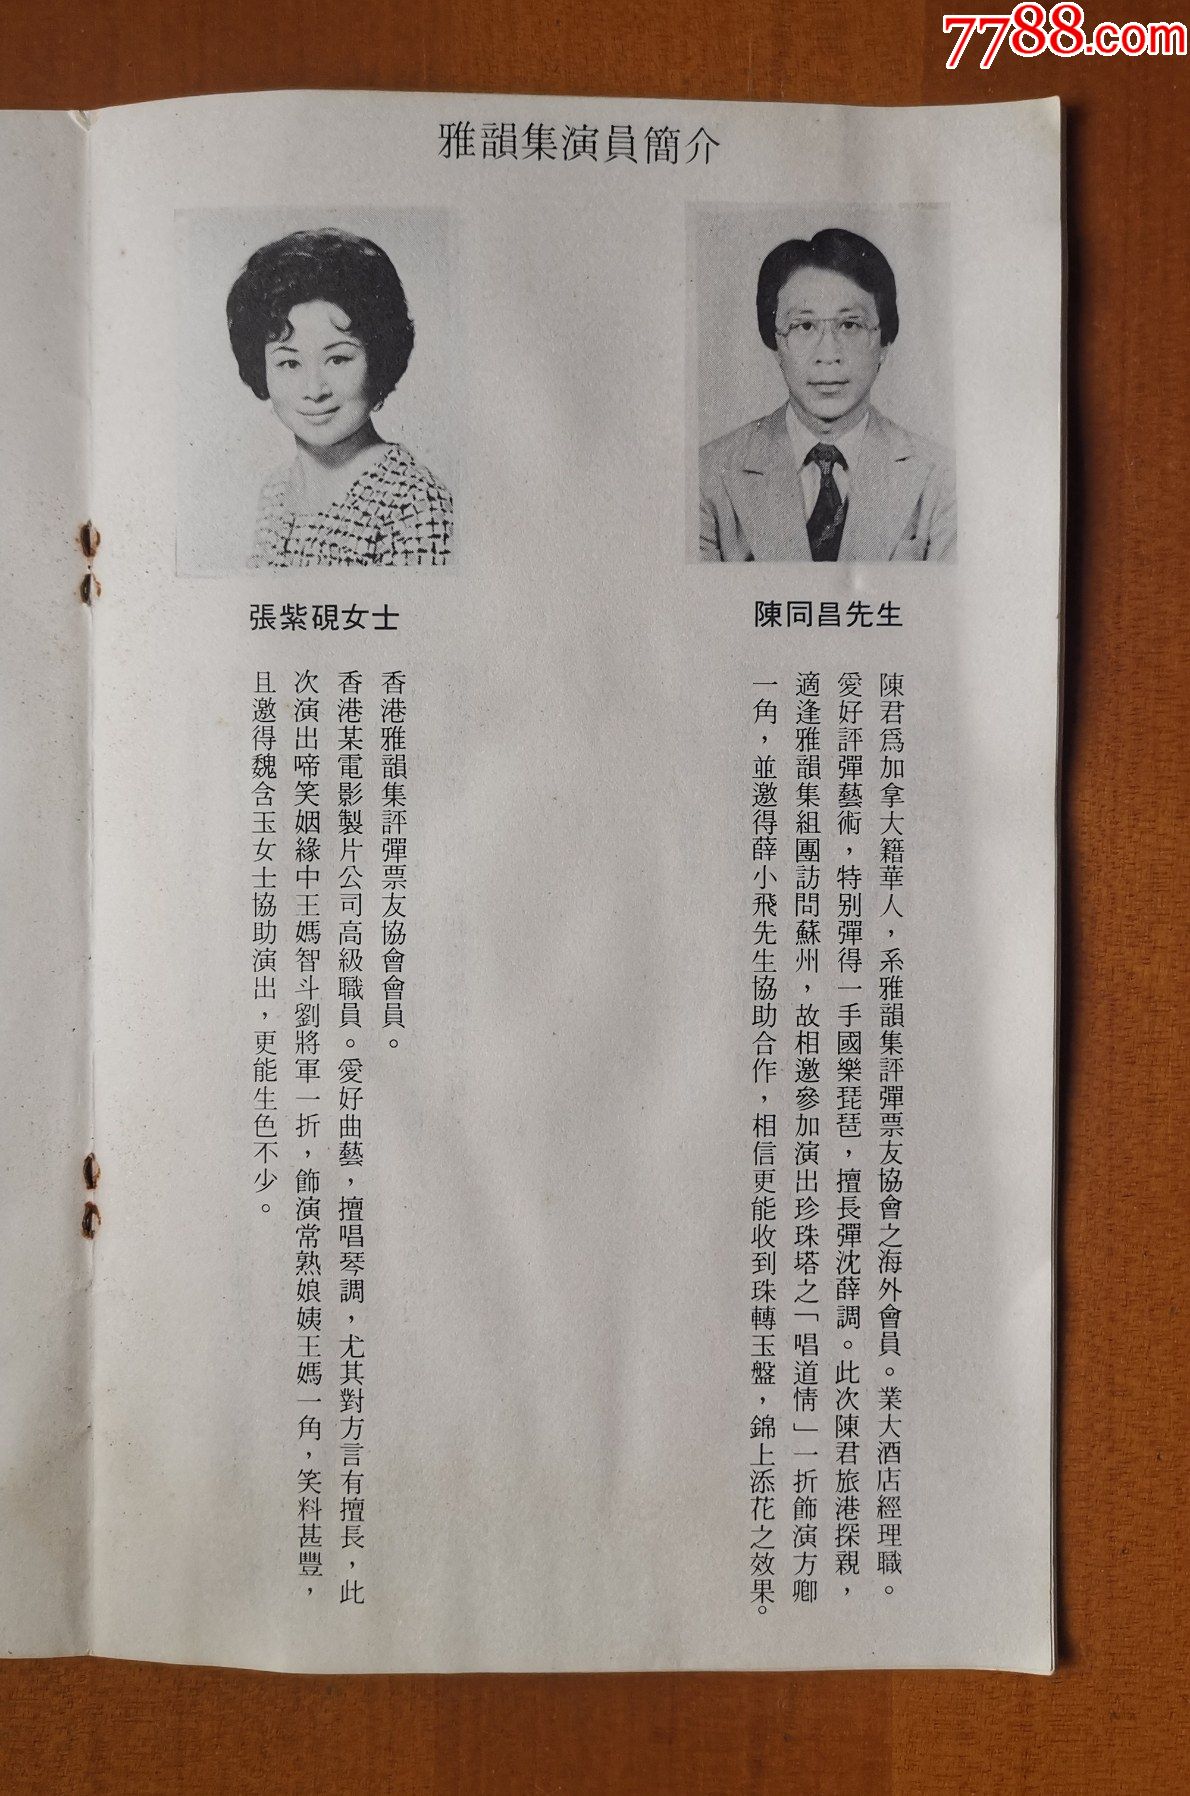 7788.com
雅韻集演員簡介
陳同昌先生
陳君爲加拿大籍華人，系雅韻集評彈票友協會之海外會員。業大酒店經理職。
愛好評彈藝術，特別彈得一手國樂琵琶，擅長彈沈薛調。此次陳君旅港探親，
適逢雅韻集組團訪問蘇州，故相邀參加演出珍珠塔之「唱道情」一折飾演方卿
一角，並邀得薛小飛先生協助合作，相信更能收到珠轉玉盤，錦上添花之效果。
張紫硯女士
香港雅韻集評彈票友協會會員。
香港某電影製片公司高級職員。愛好曲藝，擅唱琴調，尤其對方言有擅長，此
次演出啼笑姻緣中王媽智斗劉將軍一折，飾演常熟娘姨王媽一角，笑料甚豐，
且邀得魏含玉女士協助演出，更能生色不少。